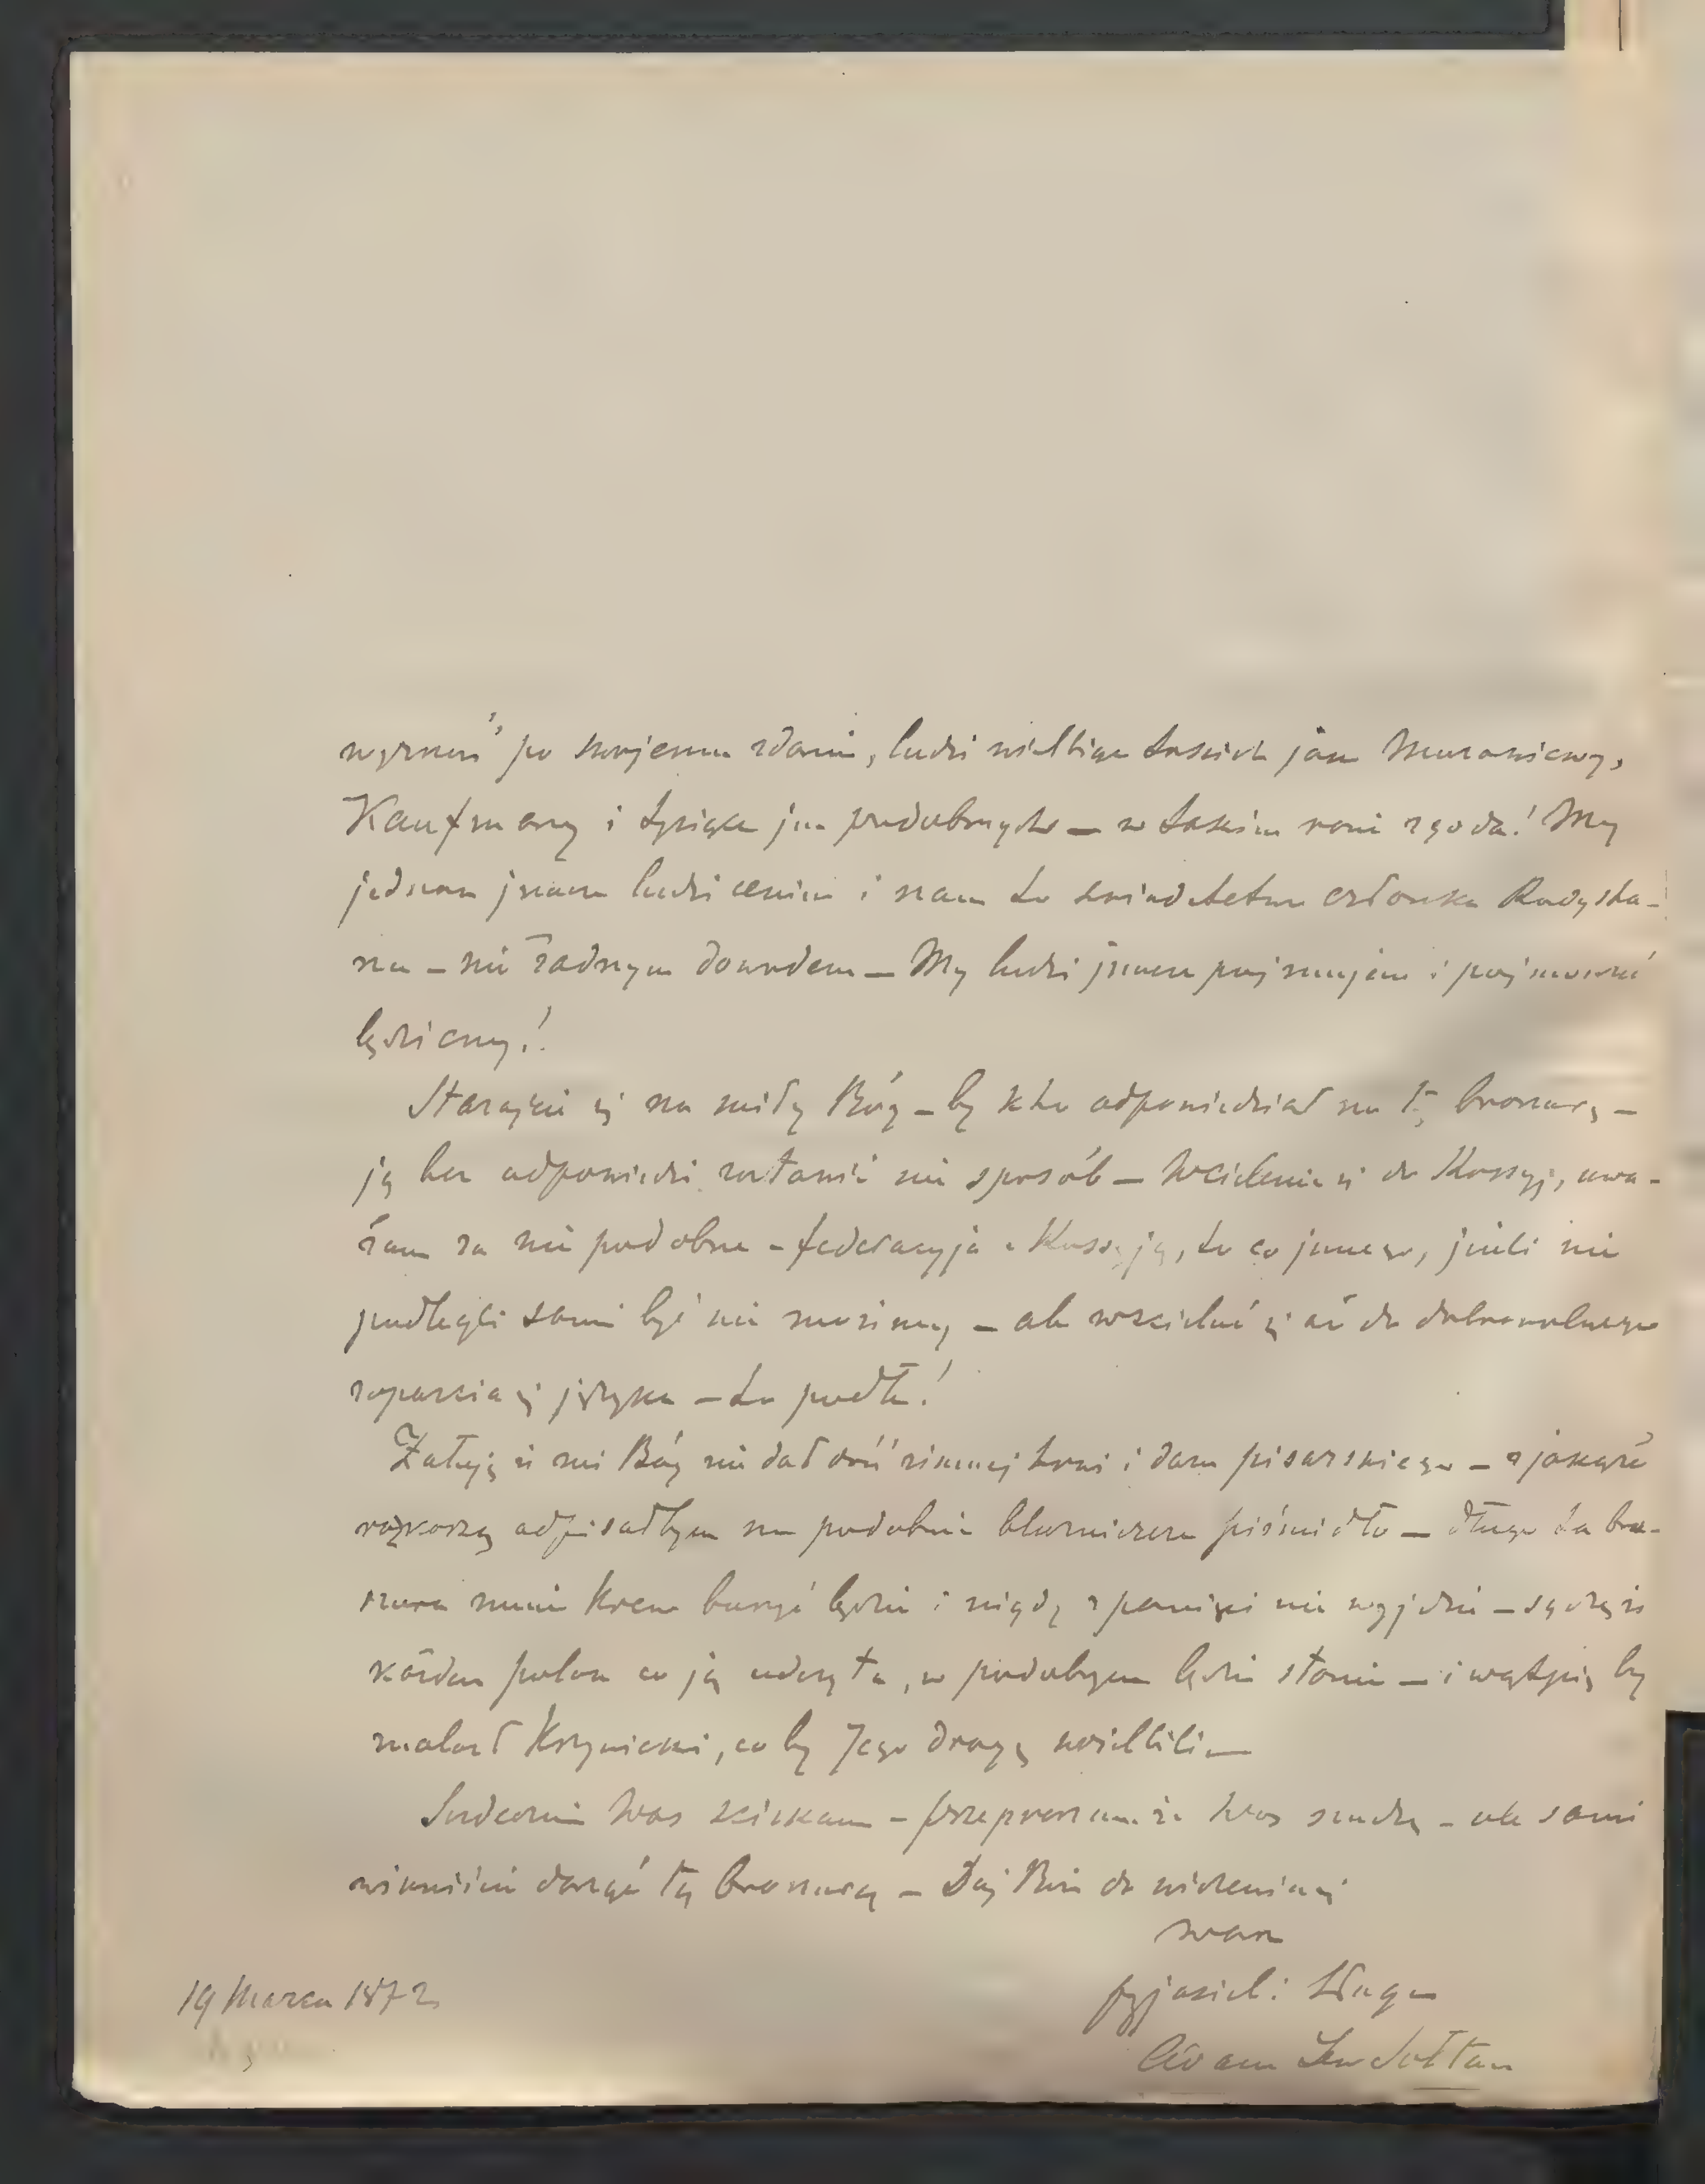 wyznać po swojemu zdanie, ludzi wielbią takich jak Murawiewy,
Kaufmany i tysiące jm podobnych — w takim razie zgoda! My
jednak jnnem ludzi cenim i nam to świadectwo człowieka
na — nie żadnym dowodem — My ludzi jnnem pojmujem i pojmować
będziemy!
Starajcie się na miły Bóg — by kto odpowiedział na tę broszurę —
ją bez odpowiedzi zostawić nie sposób — Wcielenie się do Rossyj, uwa-
żam za nie podobne — federacyja z Rossyją, to co jnnego, jeżeli nie
podlegli sami być nie możemy — ale wcielać się aż do dobrowolnego
zaparcia się języka — to podłe!
Żałuję iż mi Bóg nie dał dość zimnej krwi i daru pisarskiego — z jakąże
rozkoszą odpisałbym na podobnie bluźniercze piśmidło — długo ta bro-
szura mnie krew burzyć będzie i nigdy z pamięci nie wyjdzie — sądzę iż
każden polak co ją odczyta, w podobnym będzie stanie — i wątpię by
znalazł Krzywicki, co by Jego drogę wielbili —
Serdecznie Was ściskam — przepraszam że Was nudzę — ale sami
winniście darząc tą broszurą — Daj Boże do widzenia się
Wasz
przyjaciel i Sługa
Adam Lew Sołtan
19 Marca 1872